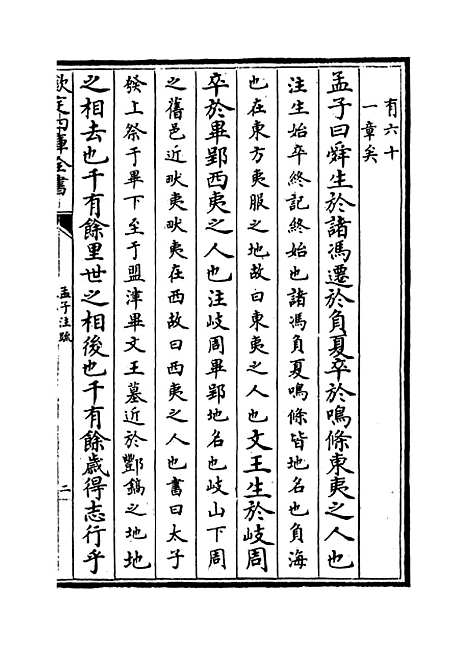 有六十
一章矣
孟子曰舜生於諸馮遷於負夏卒於鳴條東夷之人也
注生始卒終記終始也諸馮負夏鳴條皆地名也負海
也在東方夷服之地故曰東夷之人也文王生於岐周
卒於畢郢西夷之人也注岐周畢郢地名也岐山下周
之舊邑近畎夷畎夷在西故曰西夷之人也書曰太子
發上祭于畢下至于盟津畢文王墓近於酆鎬之地地
之相去也千有餘里世之相後也千有餘歲得志行乎
欽定四庫全書
孟子注疏
二